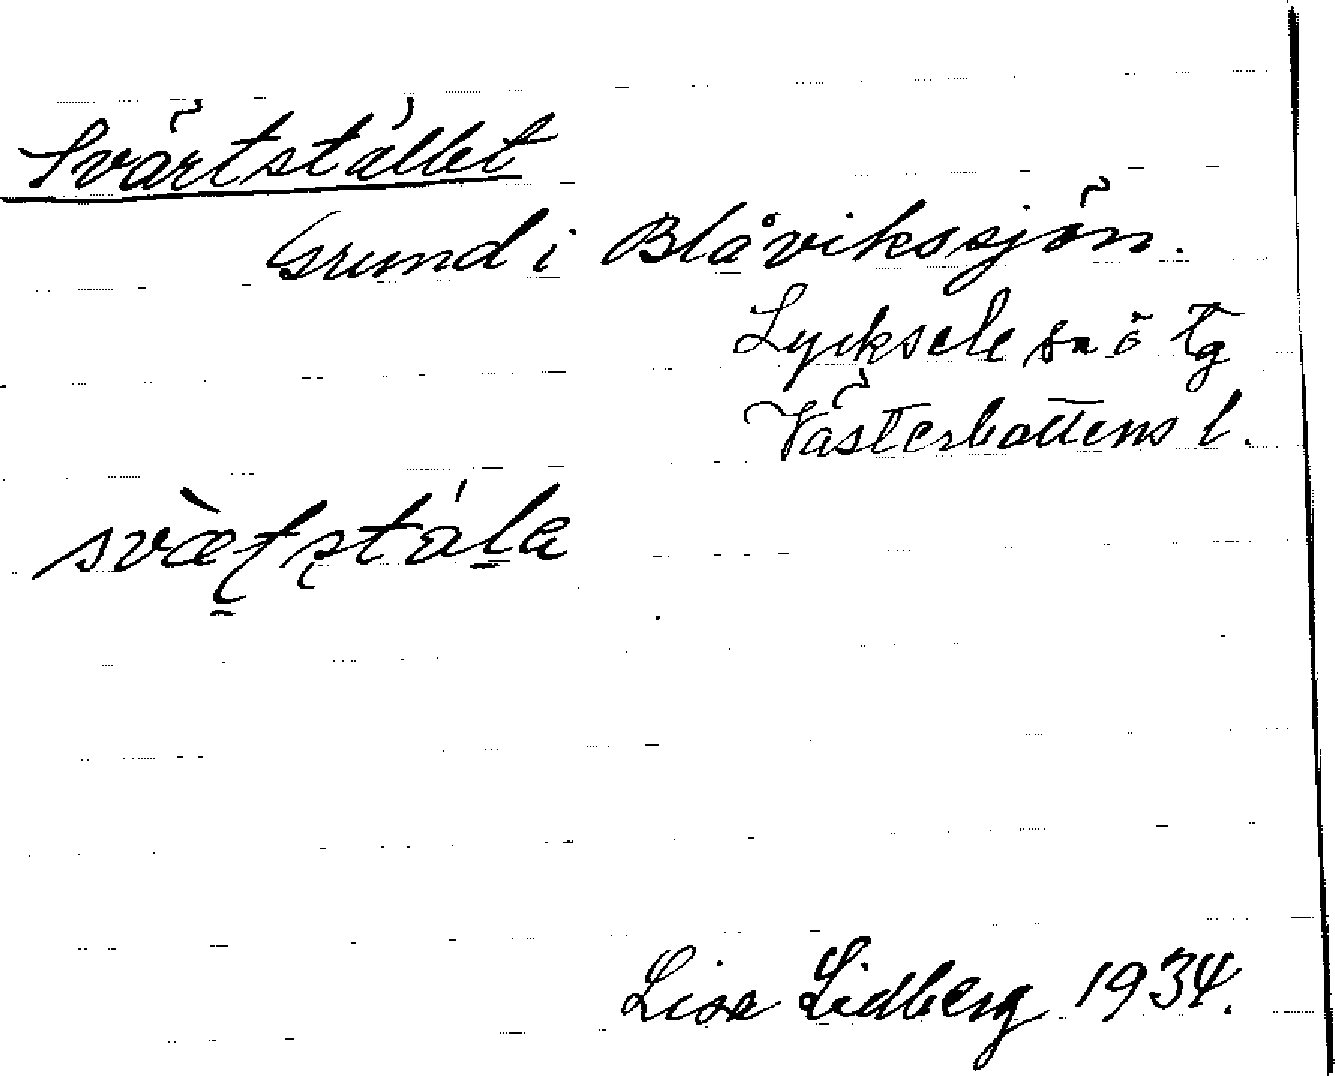 Svärtstället
Grund i Blåvikssjön.
Lycksele sn o tg
Västerbottens l.
Lisa Lidberg 1934.